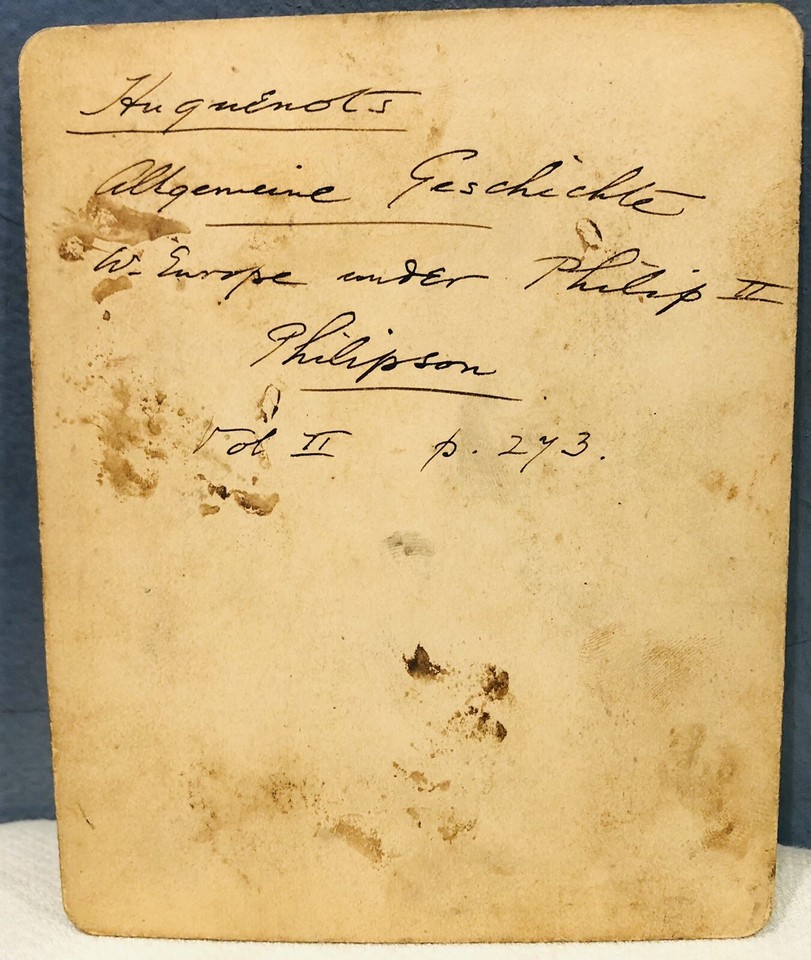 Huguenots
Allgemeine Geschichte
W. Europe under Philip II
Philipson
Vol II p. 273.